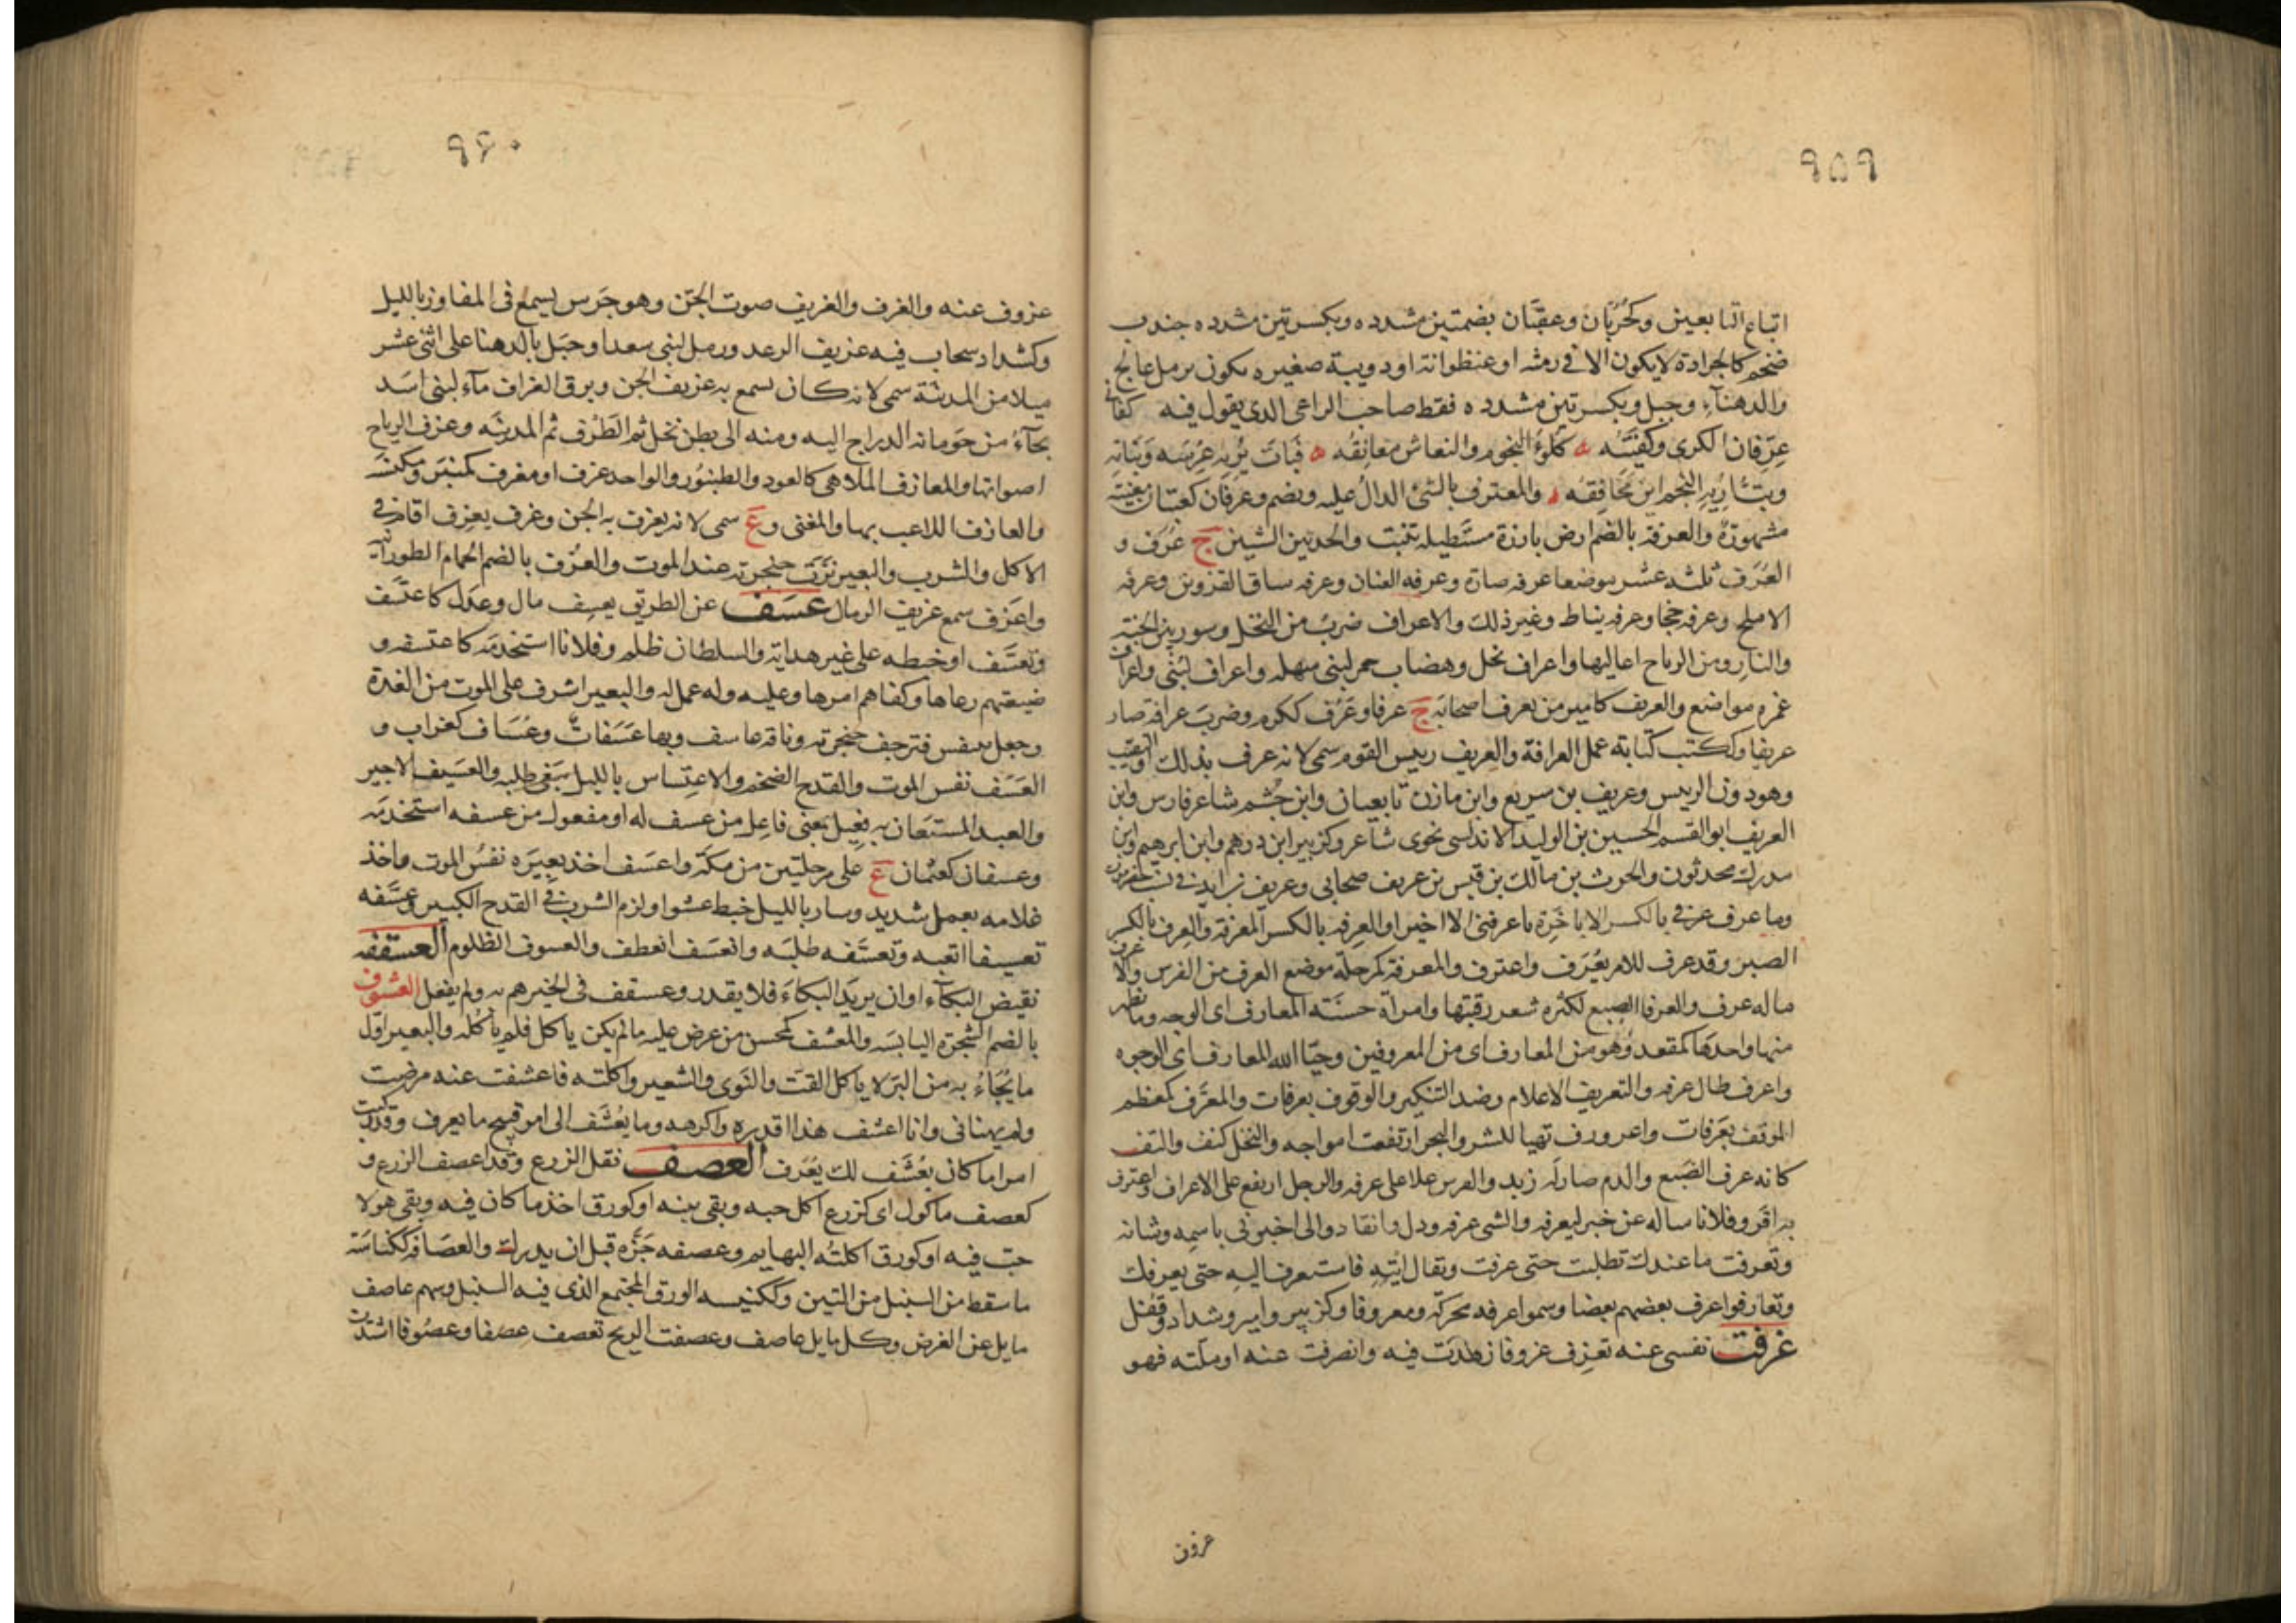 ٩٥٩
اتباع التابعين وكحُرُبّان وعفتّان بضمتين مشدده وبكسرتين مشدده جندب
ضخم كالجرادة لا يكون الا في رمثه او عنظوانة او دويبة صغيره تكون برمل عالج
والدهناء وجبل وبكسرتين مشدده فقط صاحب الراعى الذى يقول فيه كفانى
عِرِفّان الكرى وكفيته كلوءُ النجوم والنعاش معانقُه فبات يُريه عِرْسَه وبناته
وبتُّ أريه النجم اين مخافقه والمعترف بالشئ الدالُّ عليه ويضم وعرفان كعتبان مغنية
مشهورة والعرفة بالضم ارض بارزة مستطيلة تنبت والحد بين الشيئين ج عُرَف و
العُرَف ثلثه عشر موضعا عرفه صارة وعرفه القنان وعرفه ساق القروين وعرفه
الاملح وعرفه خجا وعرفه نباط وغير ذلك والاعراف ضرب من النخل وسور بين الجنة
والنار ومن الرياح اعاليها واعراف نخل وهضاب حمر لبنى سهله واعراف لبنى واعراف
غمره مواضع والعريف كامير من يعرف اصحابه ج عرفا وعَرُف ككرم وضرب عرافة صار
عريفا وككتب كتابة عمل العرافة والعريف رييس القوم سمى لانه عرف بذلك او النقيب
وهو دون الرييس وعريف بن سريع وابن مازن تابعيان وابن جُشم شاعر فارس وابن
العريف ابو القسم الحسين بن الوليد الاندلسى نحوى شاعر وكزبير ابن درهم وابن ابرهيم وابن
مدرك محدثون والحرث بن مالك بن قيس بن عريف صحابى وعريف بن ابد في نسب حضرموت
وما عرف عِرفى بالكسر الا باخَرة ما عرفنى الا اخيرا والعِرفه بالكسر المعرفة والعِرف بالكسر
الصبر وقد عرف للامر يعْرَف واعترف والمعرفة كمرحلة موضع العرف من الفرس والاعرف
ما له عرف والعرفا الضبع لكثره شعر رقبتها وامراة حسَنَة المعارف اى الوجه وما يظهر
منها واحدها كمقعد وهو من المعارف اى من المعروفين وحيّا الله المعارف اى الوجوه
واعرف طال عرفه والتعريف الاعلام وضد التنكير والوقوف بعرفات والمعرَّف كمعظم
الموقف بعَرفات واعرورف تهيا للشر والبحر ارتفعت امواجه والنخل كثف والتف
كانه عرف الضبع والدم صار له زبد والفرس علا على عرفه والرجل ارتفع على الاعراف واعترف
به اقر وفلانا ساله عن خبر ليعرفه والشى عرفه وذل وانقاد والى اخبرنى باسمه وشانه
وتعرفت ما عندك تطلبت حتى عرفت ويقال ايته فاستعرف اليه حتى يعرفك
وتعارفوا عرف بعضهم بعضا وسموا عرفه محركة ومعروفا وكزبير وامير وشداد وقفل
عزفت نفسى عنه تعزِف عزوفا زهدت فيه وانصرفت عنه او ملّته فهو
عزوف
٩٦٠
عزوف عنه والعزف والعزيف صوت الجن وهو جَرس يسمع فى المفاوز بالليل
وكشداد سحاب فيه عزيف الرعد ورمل لبنى سعد او جبل بالدهنا على اثنى عشر
ميلا من المدينة سمى لانه كان يسمع به عزيف الجن وبرق العزاف مآء لبنى اسد
يجآءُ من حَومانة الدراج اليه ومنه الى بطن نخل ثم الطرف ثم المدينه وعزف الرياح
اصواتها والمعازف الملاهى كالعود والطنبور والواحد عزف او معزف كمنبر ومكنسة
والعازف اللاعب بها والمغنى و ع سمى لانه يعزف به الجن وعزف يعزف اقام فى
الاكل والشرب والبعير نَزَت حنجرته عند الموت والعُزف بالضم الحمام الطورانية
واعزف سمع عزيف الرمال عسَف عن الطريق يعسِف مال وعدل كاعتسف
وتعسَّف او خبطه على غير هداية والسلطان ظلم وفلانا استخدمه كاعتسفه و
ضيعتهم رعاها وكفاهم امرها وعليه وله عمل له والبعير اشرف على الموت من الغدة
وجعل يتنفس فترجف حنجرته وناقه عاسف وبها عَسَفاتٌ وعُسَاف كغراب و
العَسَف نفس الموت والقدح الضخم والاعتساس بالليل يبغى طلبه والعسيف الاجير
والعبد المستعان به فعيل بمعنى فاعل من عسف له او مفعول من عسفه استخدمه
وعسفان كعثمان ع على مرحلتين من مكة واعسَف اخذ بعيرَه نفسُ الموت واخذ
غلامه بعمل شديد وسار بالليل خبط عشوا ولزم الشرب فى القدح الكبير وعسَّفه
تعسيفا اتعبه وتعسَّفه طلبَه وانعسَف انعطف والعسوف الظلوم العسقفه
نقيض البكآء او ان يريد البكاءَ فلا يقدر وعسقف فى الخير هم به ولم يفعل العشوف
بالضم الشجرة اليابسه والمعشف كمحسن من عرض عليه ما لم يكن ياكل فلم ياكله والبعير اول
ما يُجَاءُ به من البَر لا ياكل القت والنوى والشعير واكلته فاعشفت عنه مرضت
ولم يهنانى وانا اعشف هذا اقدره واكرهه وما يُعشَف الى امر قبيح ما يعرف وقد ركبت
امرا ما كان يُعْشَف لك يُعْرَف العصف نقل الزرع وقد اعصف الزرع و
كعصف ماكول اى كزرع اكل حبه وبقى تبنه او كورق اخذ ما كان فيه وبقى هو لا
حب فيه او كورق اكلتْه البهايم وعصفه جَزّه قبل ان يدرك والعصَافه ككناسة
ما سقط من السنبل من التبن وككنيسه الورق المجتمع الذى فيه السنبل وسهم عاصف
مايل عن الغرض وكل مايل عاصف وعصفت الريح تعصف عصفا وعصوفا اشتدت